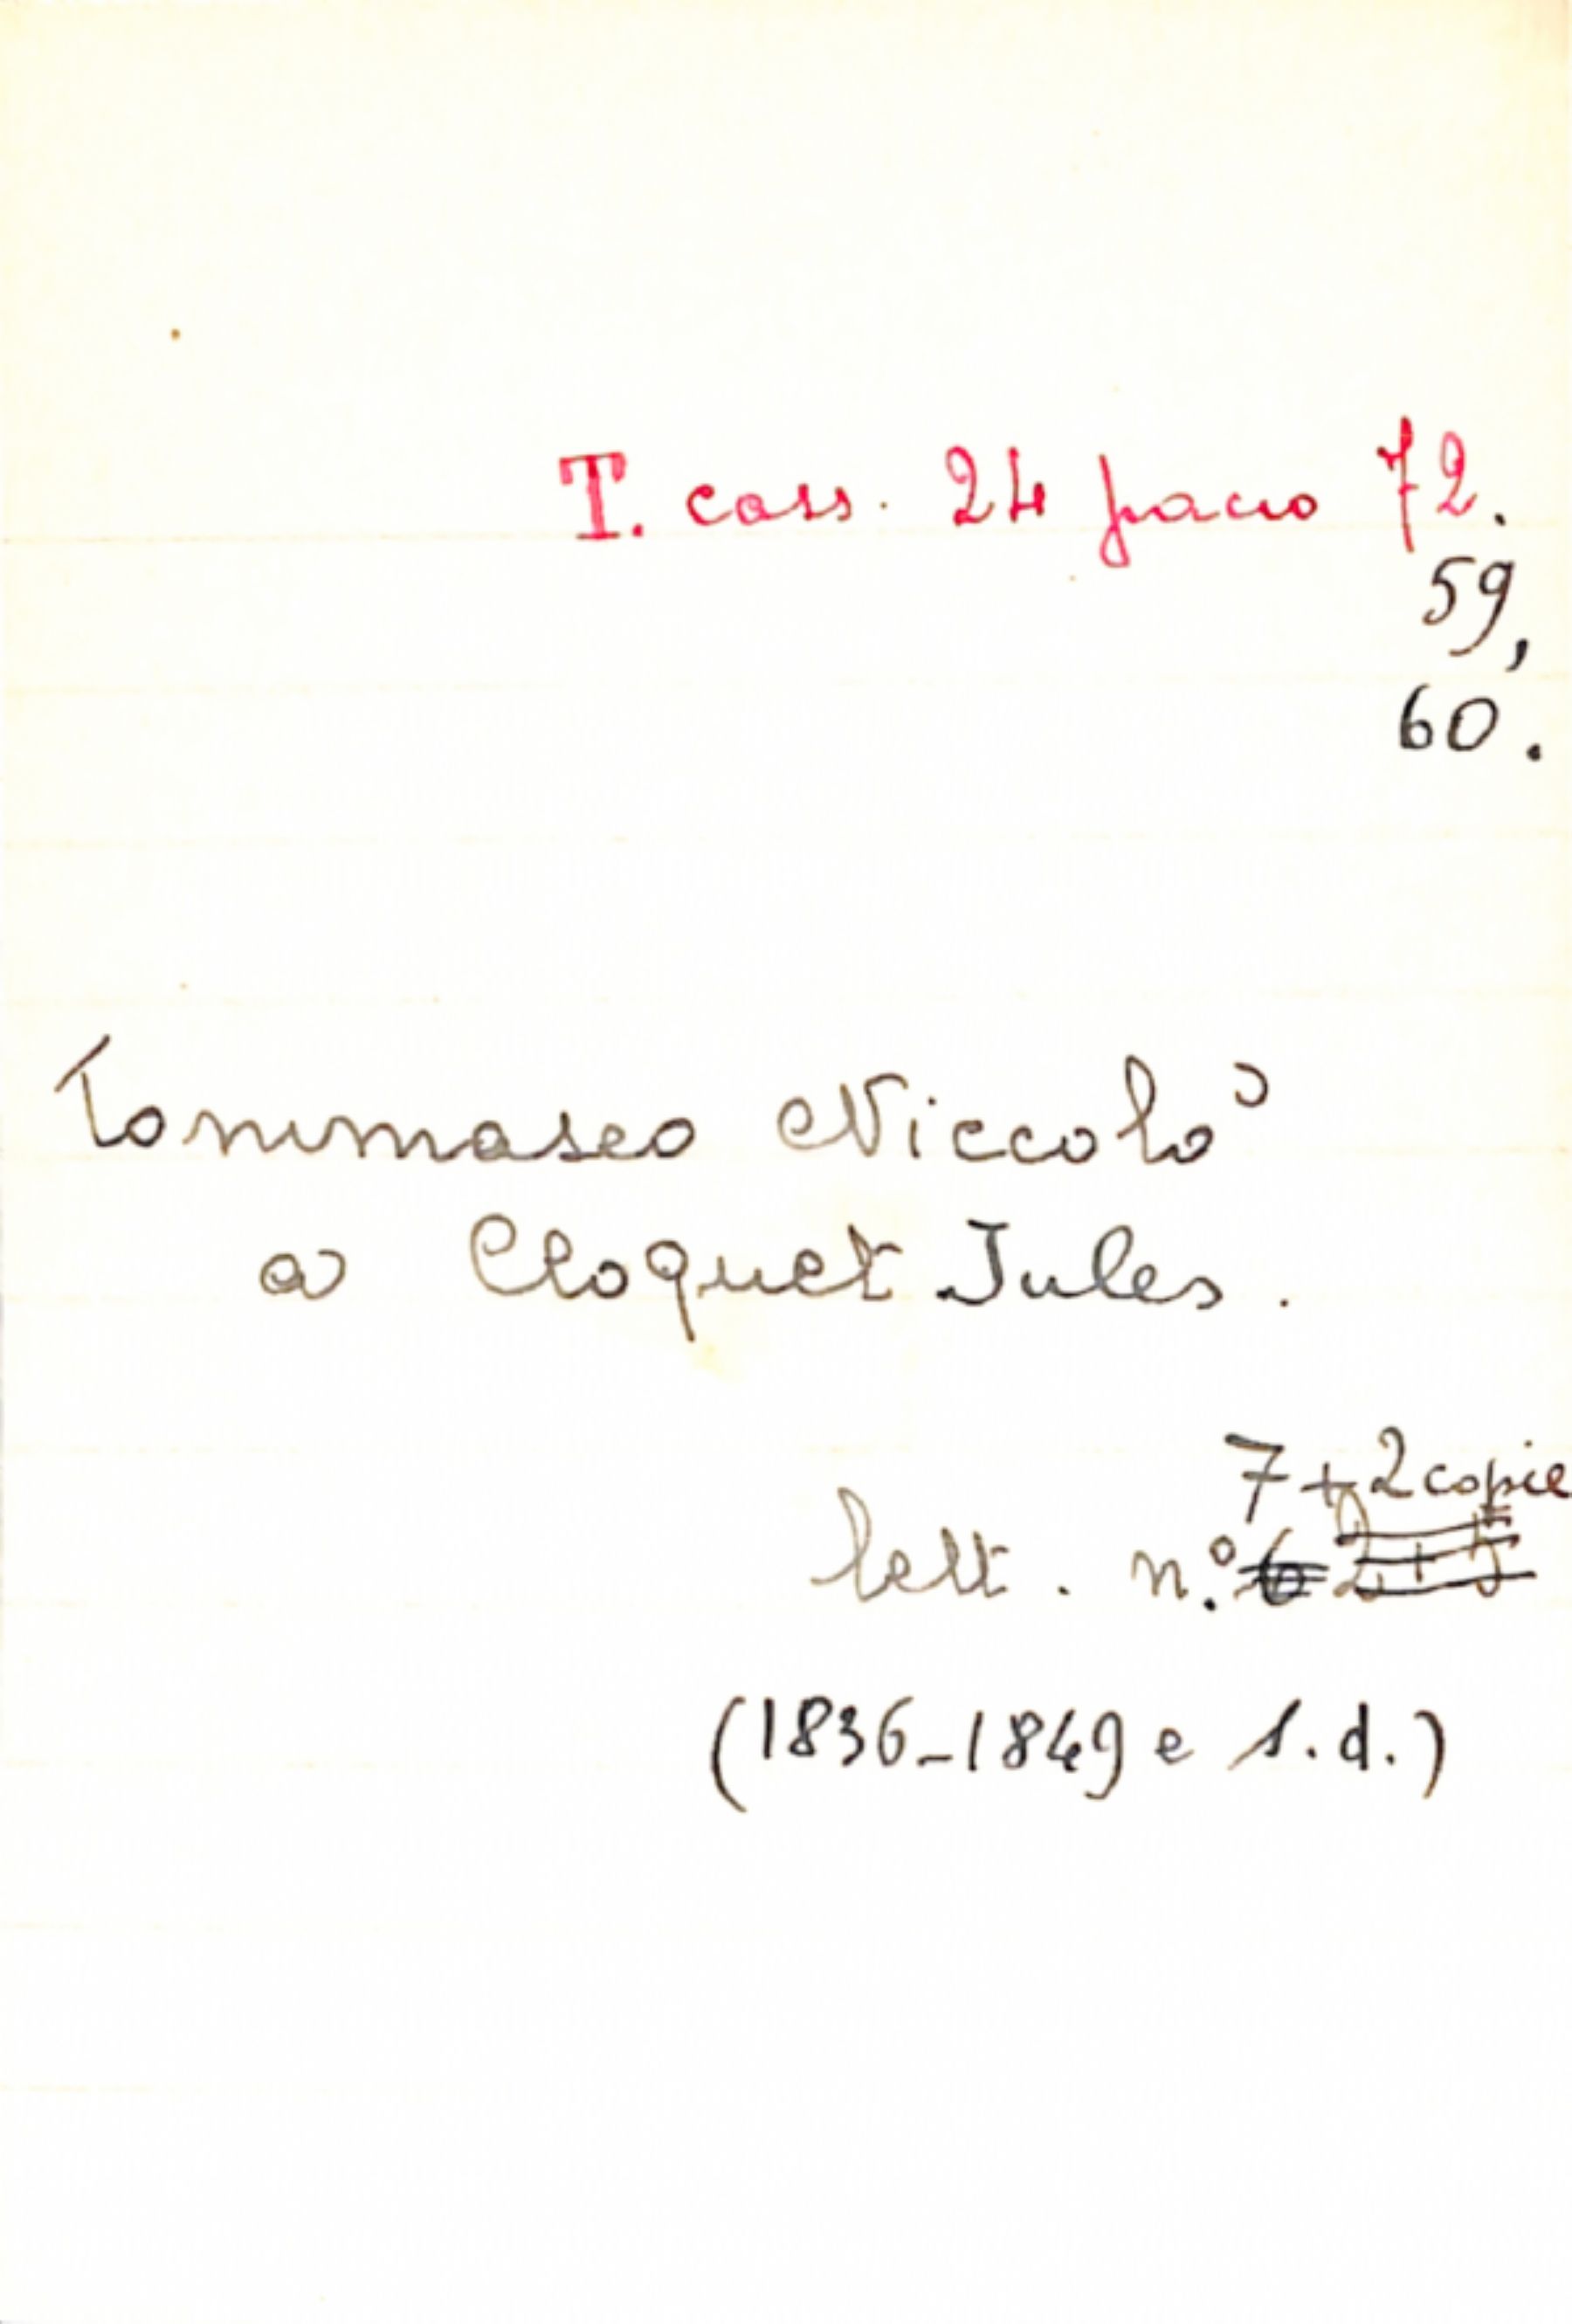 T. cass. 24 pacco 72.
59,
60.
Tommaseo Niccolò
a Cloquet Jules.
7 + 2 copie
lett. n.º
(1836-1849 e s.d.)